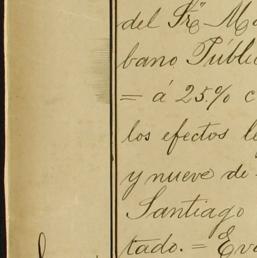 del Sr. Ma
bano Públi
= á 25% c
los efectos le
y nueve de
Santiago
tado. = Eva